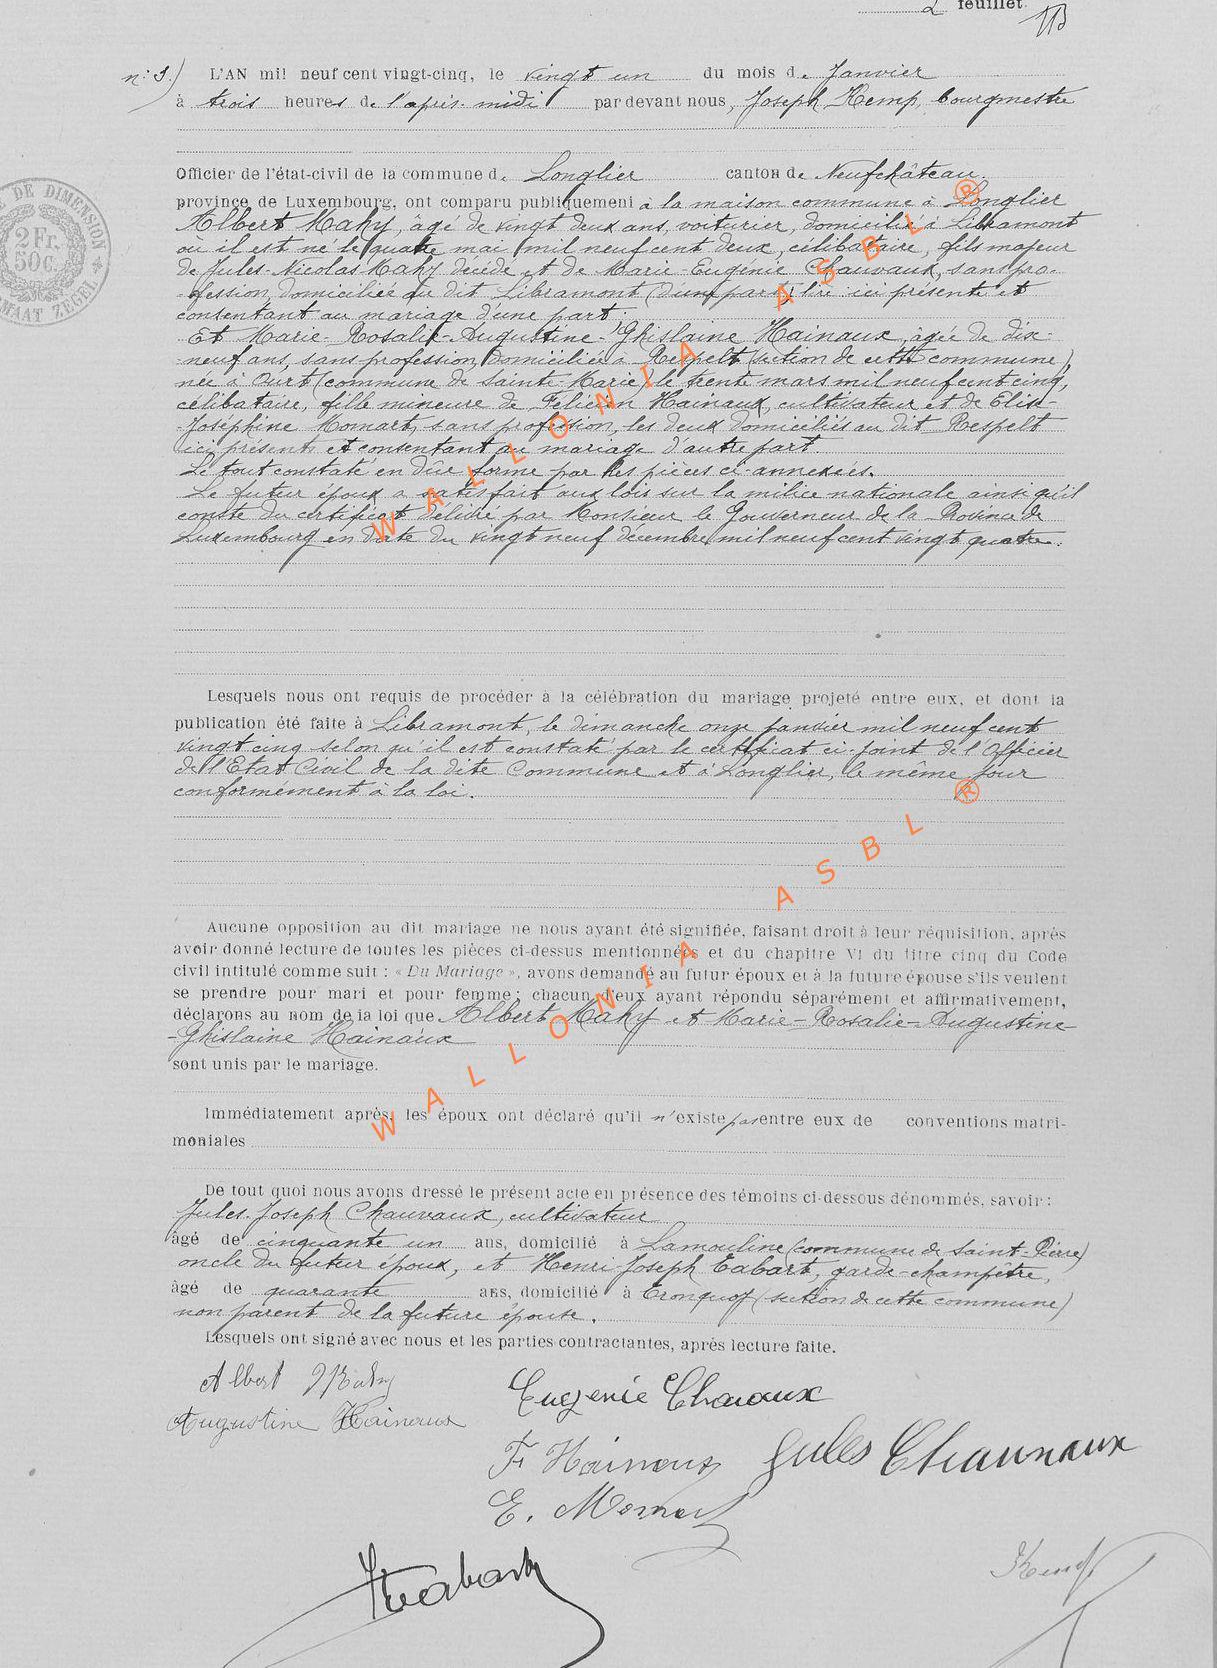 2 feuillet.
n: 3.) L'AN mil neuf cent vingt-cinq, le vingt un du mois de Janvier
à trois heures de l'après-midi par devant nous, Joseph Kemp, bourgmestre
Officier de l'état-civil de la commune de Longlier canton de Neufchâteau.
province de Luxembourg, ont comparu publiquement à la maison commune à Longlier
Albert Mahy, âgé de vingt deux ans, voiturier, domicilié à Libramont
où il est né le quatre mai mil neuf cent deux, célibataire, fils majeur
de Jules-Nicolas Mahy décédé et de Marie-Eugénie Chauvaux, sans pro-
-fession, domiciliée au dit Libramont (d'une part) lire ici présente et
consentant au mariage d'une part;
Et Marie-Rosalie-Augustine-Ghislaine Hainaux, âgée de dix-
-neuf ans, sans profession, domiciliée à Respelt (section de cette commune),
née à Ourt (commune de Sainte-Marie) le trente mars mil neuf cent cinq,
célibataire, fille mineure de Félicien Hainaux, cultivateur et de Elise-
-Joséphine Momart, sans profession, les deux domiciliés au dit Respelt
ici présents et consentant au mariage d'autre part.
Le tout constaté en dûe forme par les pièces ci-annexées.
Le futur époux a satisfait aux lois sur la milice nationale ainsi qu'il
conste du certificat délivré par Monsieur le Gouverneur de la Province de
Luxembourg en date du vingt neuf décembre mil neuf cent vingt quatre.
Lesquels nous ont requis de procéder à la célébration du mariage projeté entre eux, et dont la
publication été faite à Libramont, le dimanche onze janvier mil neuf cent
vingt cinq selon qu'il est constaté par le certificat ci-joint de l'Officier
de l'Etat Civil de la dite Commune et à Longlier, le même jour
conformément à la loi.
Aucune opposition au dit mariage ne nous ayant été signifiée, faisant droit à leur réquisition, après
avoir donné lecture de toutes les pièces ci-dessus mentionnées et du chapitre VI du titre cinq du Code
civil intitulé comme suit : « Du Mariage », avons demandé au futur époux et à la future épouse s'ils veulent
se prendre pour mari et pour femme; chacun d'eux ayant répondu séparément et affirmativement,
déclarons au nom de la loi que Albert Mahy et Marie-Rosalie-Augustine-
-Ghislaine Hainaux
sont unis par le mariage.
Immédiatement après, les époux ont déclaré qu'il n'existe pas entre eux de conventions matri-
moniales
De tout quoi nous avons dressé le présent acte en présence des témoins ci-dessous dénommés, savoir :
Jules-Joseph Chauvaux, cultivateur
âgé de cinquante un ans, domicilié à Lamouline (commune de Saint-Pierre)
oncle du futur époux, et Henri-Joseph Tabart, garde-champêtre,
âgé de quarante ans, domicilié à Tronquoy (section de cette commune)
non parent de la future épouse.
Lesquels ont signé avec nous et les parties contractantes, après lecture faite.
Albert Mahy
Eugenie Chavaux
Augustine Hainaux
F Hainaux Jules Chauvaux
E. Momart
HTabart
Kemp
2 Fr.
50 c.
WALLONIA ASBL ®
WALLONIA ASBL ®